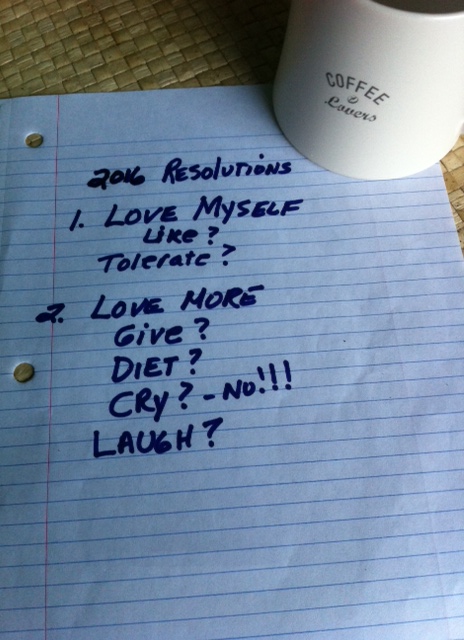 COFFEE
Lovers
2016 RESOLUTIONS
1. LOVE MYSELF
Like?
Tolerate?
2. LOVE MORE
Give?
DIET?
CRY? - NO!!!
LAUGH?